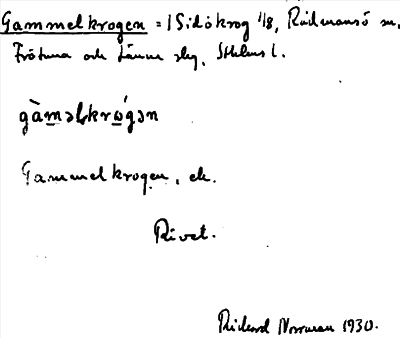 Gammelkrogen = 1 Sidökrog 1/8, Rådmansö sn,
Frötuna och Länna slg, Sthlms l.
gàməlkrógən
Gammelkrogen, ek.
Rivet.
Rickard Norrman 1930.